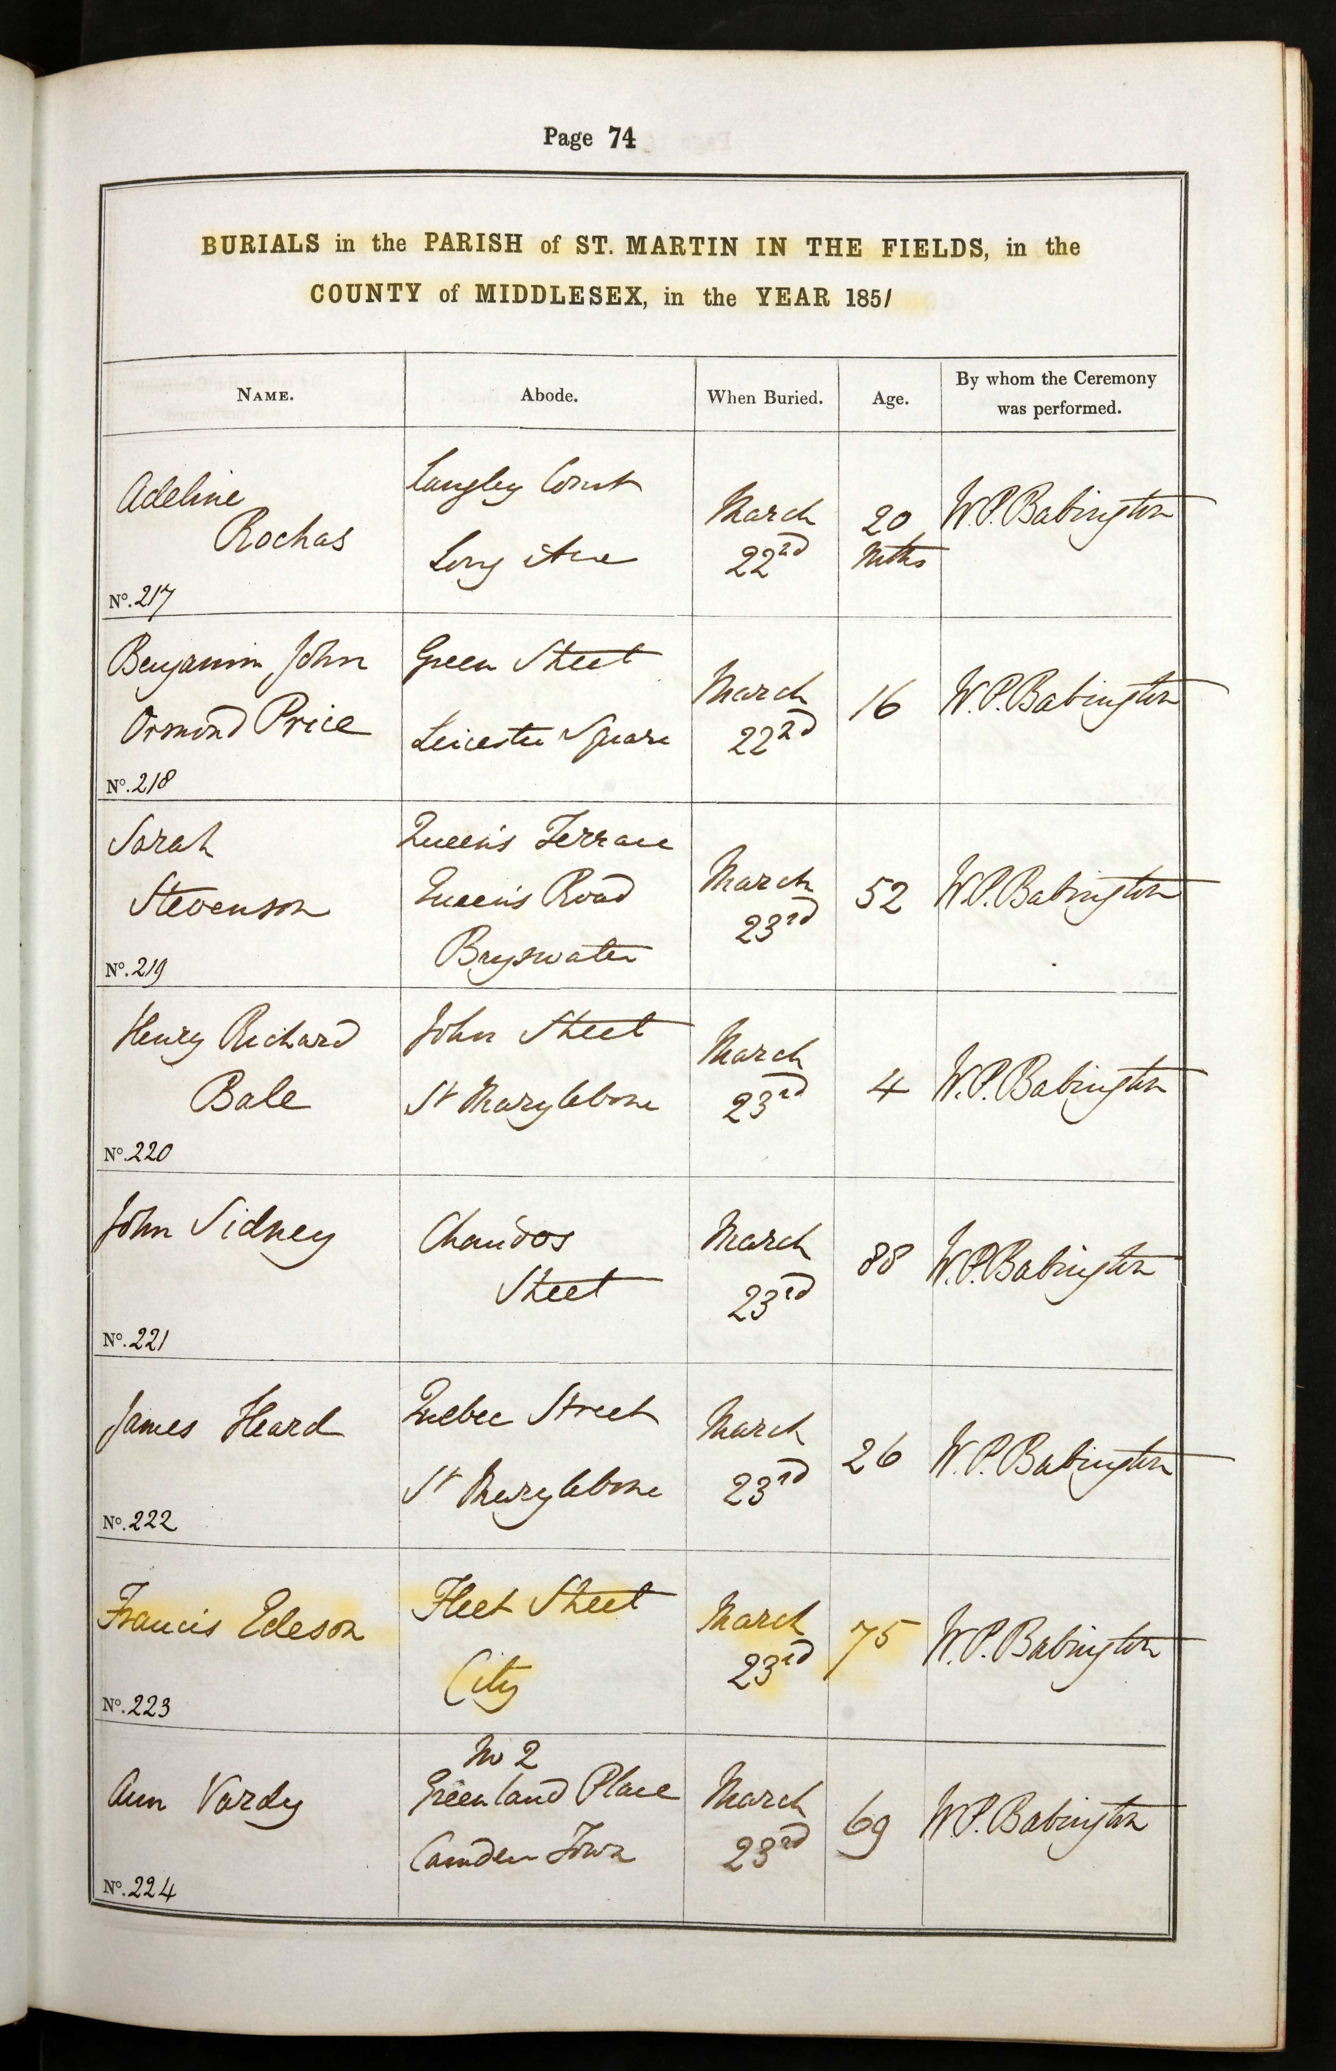 Page 74
BURIALS in the PARISH of ST. MARTIN IN THE FIELDS, in the
COUNTY of MIDDLESEX, in the YEAR 1851
NAME.
Abode.
When Buried.
Age.
By whom the Ceremony
was performed.
Adeline
Rochas
No. 217
Langley Court
Long Acre
March
22nd
20
Mths
W.P. Babington
Benjamin John
Ormond Price
No. 218
Green Street
Leicester Square
March
22nd
16
W.P. Babington
Sarah
Stevenson
No. 219
Queen's Terrace
Queen's Road
Bayswater
March
23rd
52
W.P. Babington
Henry Richard
Bale
No. 220
John Street
St Marylebone
March
23rd
4
W.P. Babington
John Sidney
No. 221
Chandos
Street
March
23rd
88
W.P. Babington
James Heard
No. 222
Quebec Street
St Marylebone
March
23rd
26
W.P. Babington
Francis Edeson
No. 223
Fleet Street
City
March
23rd
75
W.P. Babington
Ann Vardy
No. 224
No 2
Greenland Place
Camden Town
March
23rd
69
W.P. Babington